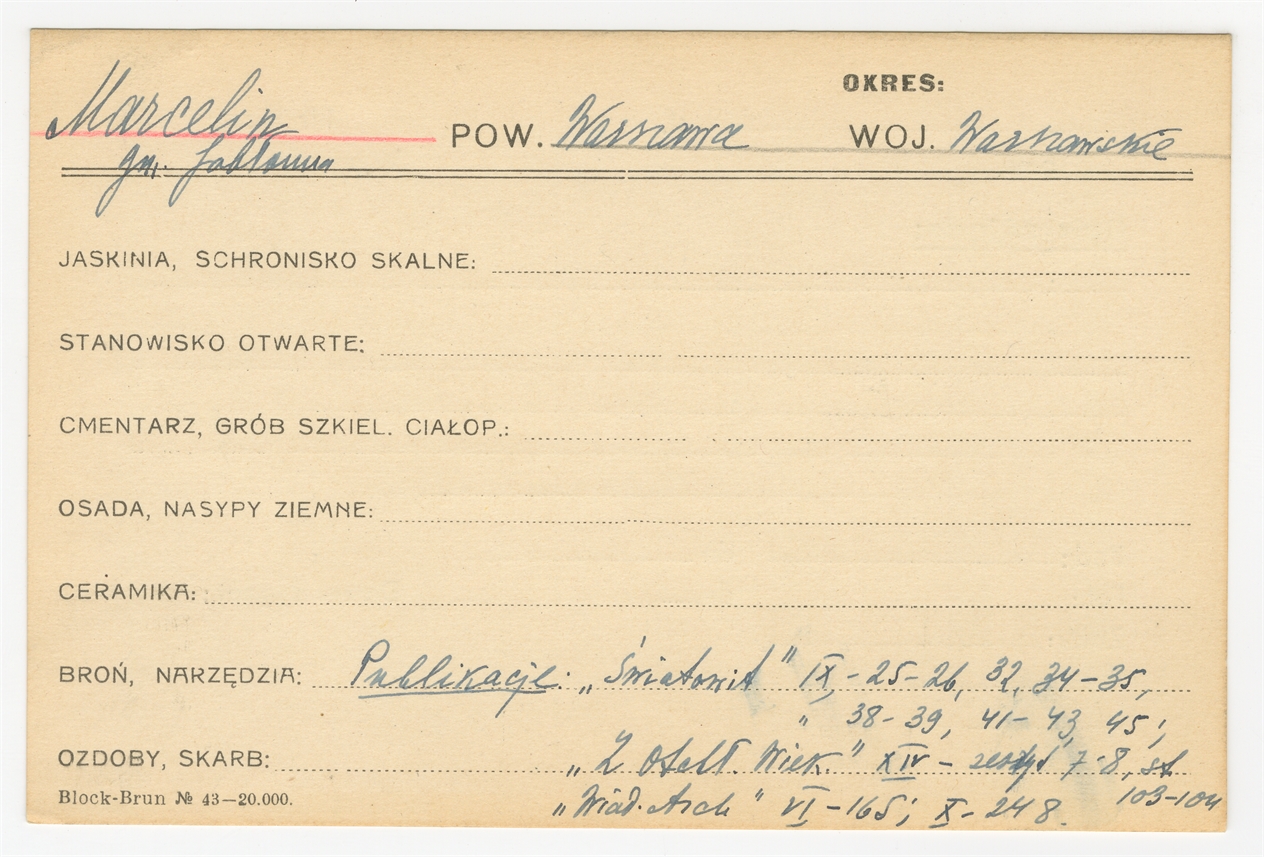 OKRES:
Marcelin POW. Warszawa WOJ. Warszawskie
gm. Jabłonna
JASKINIA, SCHRONISKO SKALNE:
STANOWISKO OTWARTE:
CMENTARZ, GRÓB SZKIEL. CIAŁOP.:
OSADA, NASYPY ZIEMNE:
CERAMIKA:
BROŃ, NARZĘDZIA: Publikacje: „Światowit" IX,-25-26, 32, 34-35,
" 38-39, 41-43, 45;
OZDOBY, SKARB: „Z Otchł. Wiek." XIV - zeszyt 7-8, st.
103-104
Block-Brun № 43—20.000. „Wiad. Arch" VI-165; X-248.